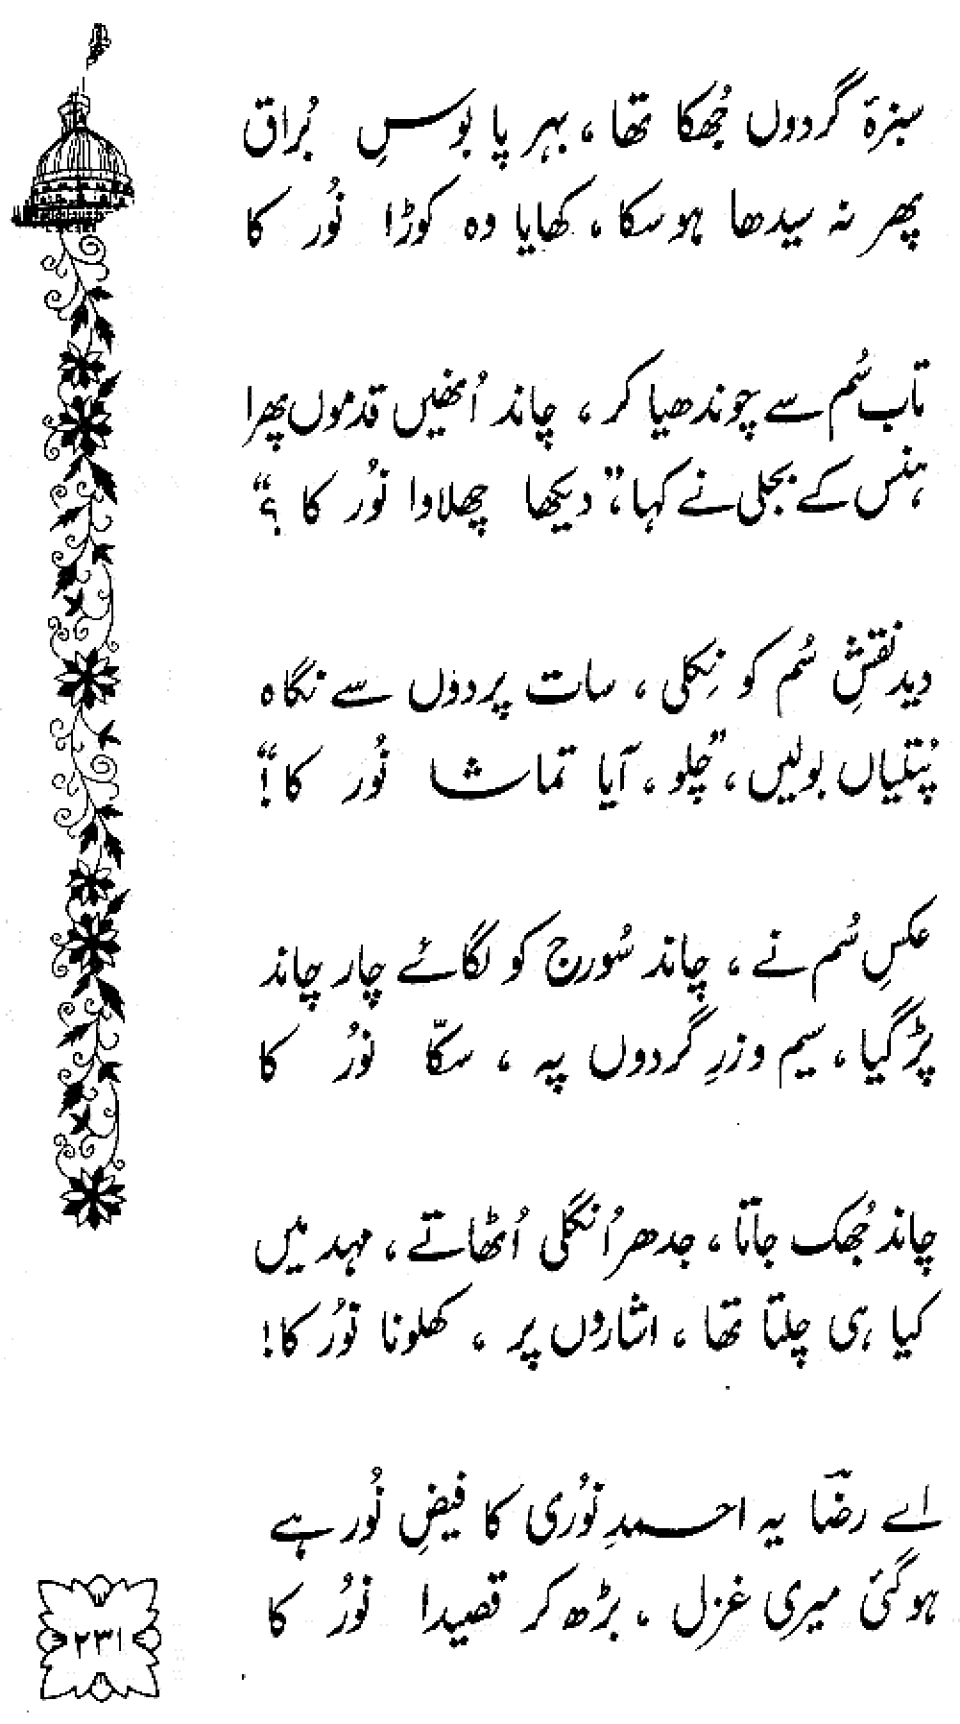 سبزۂ گردوں جُھکا تھا ، بہر پا بوسِ بُراق
پھر نہ سیدھا ہو سکا ، کھایا وہ کوڑا نُور کا
تاب سُم سے چوندھیا کر ، چاند اُنھیں قدموں پھرا
ہنس کے بجلی نے کہا ، ”دیکھا چھلاوا نُور کا ؟“
دید نقشِ سُم کو نِکلی ، سات پردوں سے نگاہ
پُتلیاں بولیں ، ”چلو ، آیا تماشا نُور کا !“
عکسِ سُم نے ، چاند سُورج کو لگائے چار چاند
پڑ گیا ، سیم و زرِ گردوں پہ ، سکّا نُور کا
چاند جُھک جاتا ، جدھر اُنگلی اُٹھاتے ، مہد میں
کیا ہی چلتا تھا ، اشاروں پر ، کھلونا نُور کا !
اے رضؔا یہ احمدِ نُوری کا فیضِ نُور ہے
ہو گئی میری غزل ، بڑھ کر قصیدا نُور کا
۲۳۱